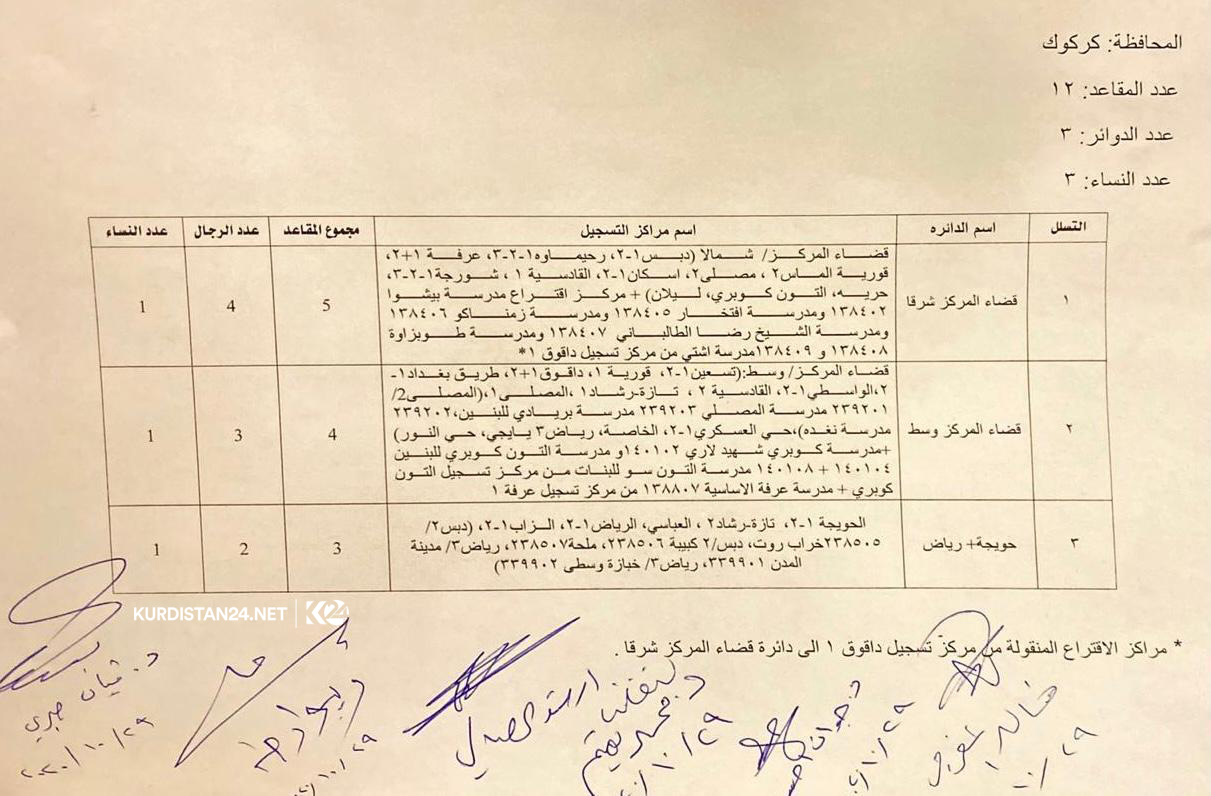 المحافظة: كركوك
عدد المقاعد: ١٢
عدد الدوائر: ٣
عدد النساء: ٣
التسلل اسم الدائره اسم مراكز التسجيل مجموع المقاعد عدد الرجال عدد النساء
قضاء المركز/ شمالا (دبس١-٢، رحيماوه١-٢-٣، عرفة ١+٢،
قورية الماس٢ ، مصلى٢، اسكان١-٢، القادسية ١ ، شورجة١-٢-٣،
حريه، التون كوبري، ليلان) + مركز اقتراع مدرسة بيشوا
١ قضاء المركز شرقا 5 4 1
١٣٨٤٠٢ ومدرسة افتخار ١٣٨٤٠٥ ومدرسة زمناكو ١٣٨٤٠٦
ومدرسة الشيخ رضا الطالباني ١٣٨٤٠٧ ومدرسة طوبزاوة
١٣٨٤٠٨ و ١٣٨٤٠٩مدرسة اشتي من مركز تسجيل داقوق ١*
قضاء المركز/ وسط:(تسعين١-٢، قورية ١، داقوق١+٢، طريق بغداد١-
٢،الواسطي١-٢، القادسية ٢ ، تازة-رشاد١ ،المصلى١،(المصلى2/
٢٣٩٢٠١ مدرسة المصلي ٢٣٩٢٠٣ مدرسة بريادي للبنين،٢٣٩٢٠٢
٢ قضاء المركز وسط 4 3 1
مدرسة نغده)،حي العسكري١-٢، الخاصة، رياض٣ يايجي، حي النور)
+مدرسة كوبري شهيد لاري ١٤٠١٠٢و مدرسة التون كوبري للبنين
١٤٠١٠٤ + ١٤٠١٠٨ مدرسة التون سو للبنات من مركز تسجيل التون
كوبري + مدرسة عرفة الاساسية ١٣٨٨٠٧ من مركز تسجيل عرفة ١
الحويجة ١-٢، تازة-رشاد٢ ، العباسي، الرياض١-٢، الزاب١-٢، (دبس٢/
٣ حويجة+ رياض 3 2 1
٢٣٨٥٠٥خراب روت، دبس/٢ كبيبة ٢٣٨٥٠٦، ملحة٢٣٨٥٠٧، رياض٣/ مدينة
المدن ٣٣٩٩٠١، رياض٣/ خبازة وسطى ٣٣٩٩٠٢)
KURDISTAN24.NET K24
* مراكز الاقتراع المنقولة من مركز تسجيل داقوق ١ الى دائرة قضاء المركز شرقا .
ارشد الصالحي
خالد المفرجي
٢٠٢٠/١٠/٢٩